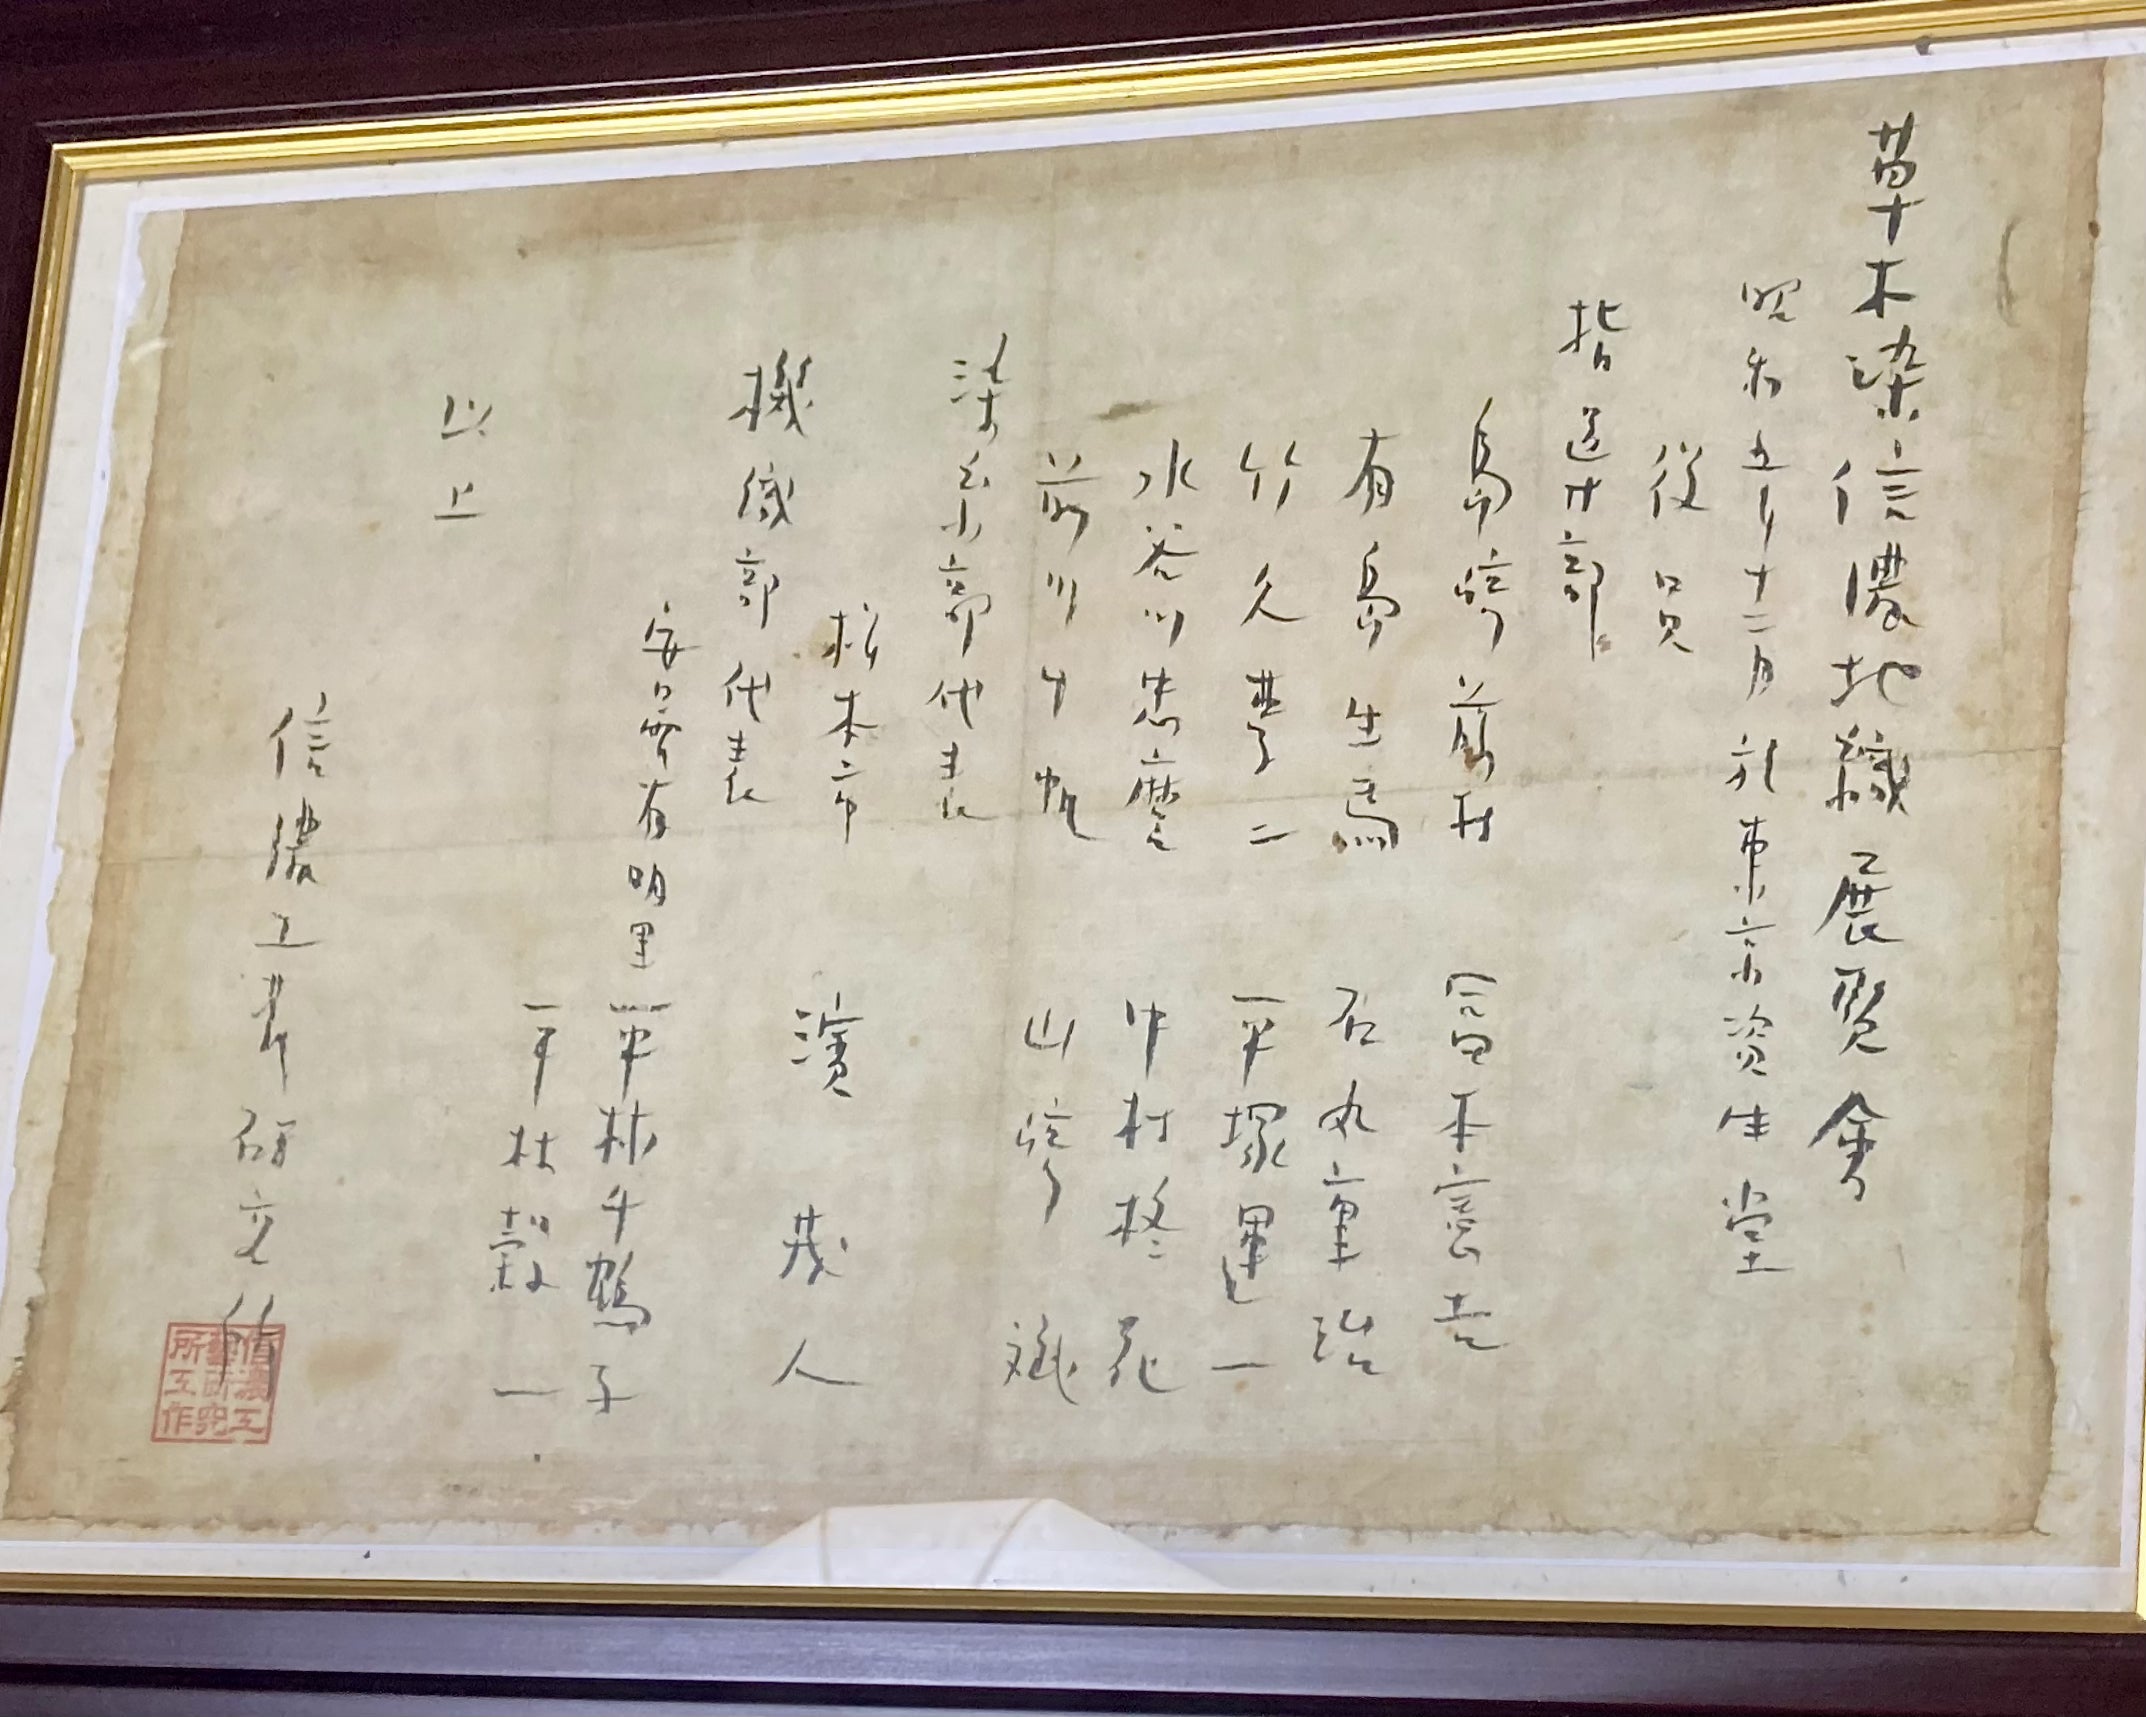 草木染信濃地織展覧会
昭和五年十二月於東京資生堂
役員
指導部
島崎藤村 富本憲吉
有島生馬 石丸重治
竹久夢二 平塚運一
水谷川忠麿 中村柊花
前川千帆 山崎 斌
染糸部代表
松本市 濱 茂人
機織部代表
安曇有明里 平林千鶴子
平林穀一
以上
信濃工芸研究所
信濃工藝研究所工作